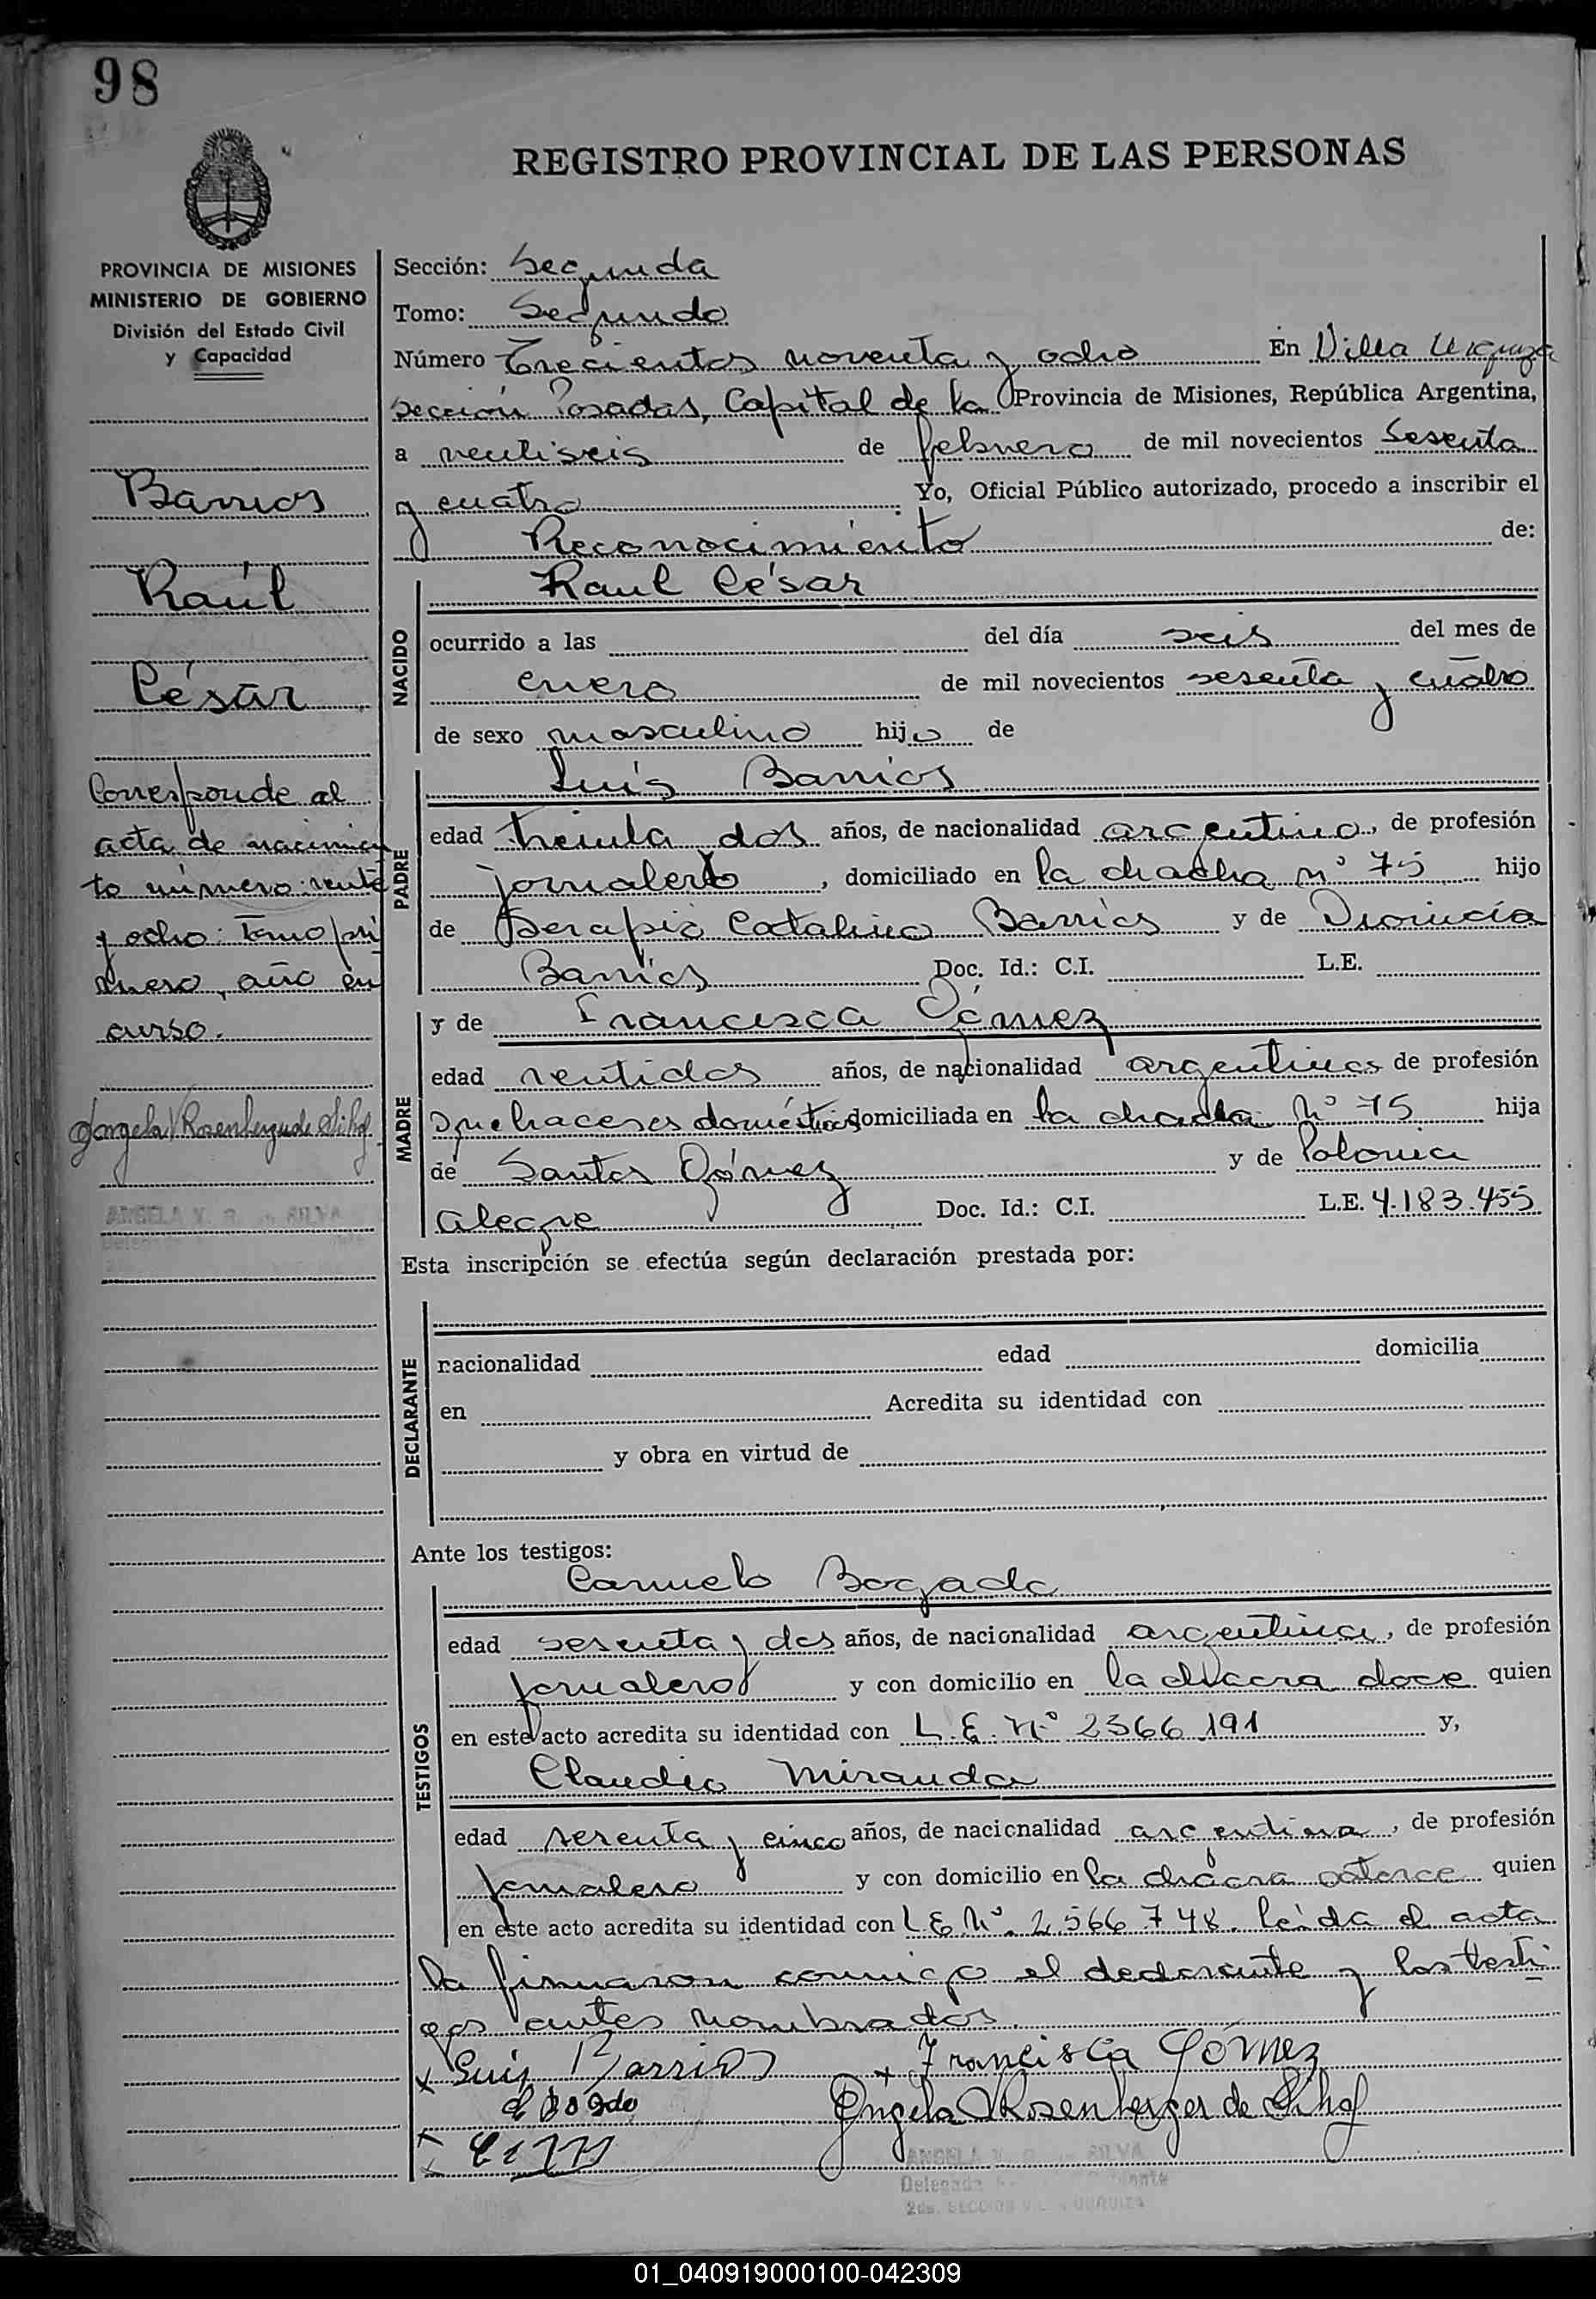 98
REGISTRO PROVINCIAL DE LAS PERSONAS
PROVINCIA DE MISIONES
MINISTERIO DE GOBIERNO
División del Estado Civil
y Capacidad
Barrios
Raúl
César
Corresponde al
acta de nacimien
to número: venti
y ocho: Tomo pri
mero, año en
curso.
Angela V Rosenberger de Silva
ANGELA V. R. de SILVA
Sección: Segunda
Tomo: Segundo
Número Trecientos noventa y ocho En Villa Urquiza
sección Posadas, Capital de la Provincia de Misiones, República Argentina,
a ventiseis de febrero de mil novecientos sesenta
y cuatro Yo, Oficial Público autorizado, procedo a inscribir el
Reconocimiento de:
NACIDO
Raul César
ocurrido a las del día seis del mes de
enero de mil novecientos sesenta y cuatro
de sexo masculino hijo de
PADRE
Luis Barrios
edad treinta dos años, de nacionalidad argentino, de profesión
jornalero, domiciliado en la chacha nº 75 hijo
de Serapio Catalino Barrios y de
Barrios Doc. Id.: C.I. L.E.
MADRE
y de Francisca Gómez
edad ventidos años, de nacionalidad argentina de profesión
quehaceres domésticos domiciliada en la chacra Nº 75 hija
de Santos Gómez y de Polonia
Alegre Doc. Id.: C.I. L.E. 4.183.455
Esta inscripción se efectúa según declaración prestada por:
DECLARANTE
nacionalidad edad domicilia
en Acredita su identidad con
y obra en virtud de
Ante los testigos:
TESTIGOS
Carmelo Bogado
edad sesenta y dos años, de nacionalidad argentina, de profesión
jornalero y con domicilio en la chacra doce quien
en este acto acredita su identidad con L.E. Nº 2366 191 y,
Claudio Miranda
edad sesenta y cinco años, de nacionalidad argentina, de profesión
jornalero y con domicilio en la chacra catorce quien
en este acto acredita su identidad con L.E. Nº. 2.566 748. leída el acta
la firmaron conmigo el declarante y los testi
gos antes nombrados.
x Luis Barrios x Francisca Gómez
Angela V Rosenberger de Silva
ANGELA V. R. de SILVA
Delegada
2da. SECCION VILLA URQUIZA
01_040919000100-042309